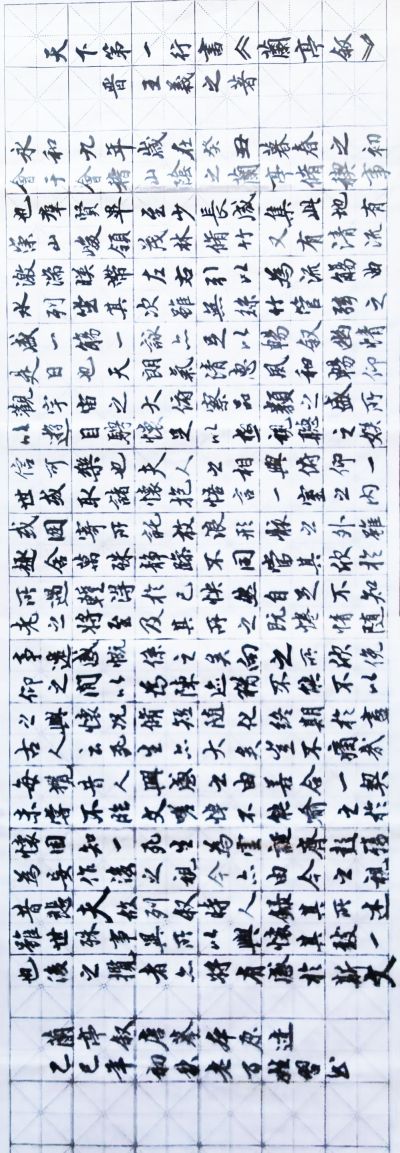 天下第一行書《蘭亭叙》
晋王羲之著
永和九年歲在癸丑暮春之初
會于會稽山陰之蘭亭脩禊事
也羣賢畢至少長咸集此地有
崇山峻領茂林脩竹又有清流
激湍暎帶左右引以為流觴曲
水列坐其次雖無絲竹管弦之
盛一觴一詠亦足以暢叙幽情
是日也天朗氣清惠風和暢仰
觀宇宙之大俯察品類之盛所
以遊目騁懷足以極視聽之娛
信可樂也夫人之相與俯仰一
世或取諸懷抱悟言一室之內
或因寄所託放浪形骸之外雖
趣舍萬殊靜躁不同當其欣於
所遇蹔得於己快然自足不知
老之將至及其所之既惓情隨
事遷感慨係之矣向之所欣俛
仰之閒以為陳迹猶不能不以
之興懷況脩短隨化終期於盡
古人云死生亦大矣豈不痛哉
每攬昔人興感之由若合一契
未嘗不臨文嗟悼不能喻之於
懷固知一死生為虛誕齊彭殤
為妄作後之視今亦由今之視
昔悲夫故列叙時人錄其所述
雖世殊事異所以興懷其致一
也後之攬者亦將有感於斯文
蘭亭叙唐摹本原迹
乙巳年初秋老百姓習書